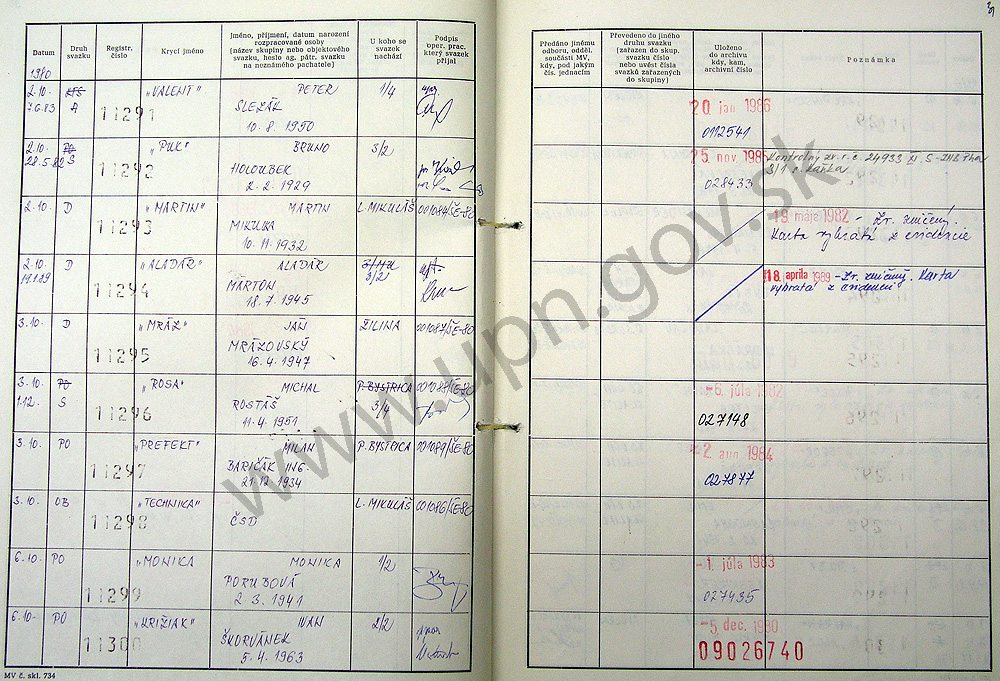 Datum
Druh svazku
Registr. číslo
Krycí jméno
Jméno, příjmení, datum narození rozpracované osoby (název skupiny nebo objektového svazku, heslo ag. pátr. svazku na neznámého pachatele)
U koho se svazek nachází
Podpis oper. prac. který svazek přijal
Předáno jinému odboru, odděl. součásti MV, kdy, pod jakým čís. jednacím
Převedeno do jiného druhu svazku (zařazen do skup. svazku číslo nebo uvést čísla svazků zařazených do skupiny)
Uloženo do archivu kdy, kam, archivní číslo
Poznámka
1980
2.10. "VALENT" PETER 1/4
7.6.83 A 11291 SLEZÁK
10. 8. 1950
20 jan 1986
0112541
2.10. PO "PUK" BRUNO 3/2
28.5.82 S 11292 HOLOUBEK
2. 2. 1929
25. nov. 1985 Kontrolný zv. r. č. 24933
028433
2.10. D "MARTIN" MARTIN L. MIKULÁŠ 001084/ŠE-80
11293 MIKULKA
10. 11. 1932
19. mája 1982 - Zv. zničený.
Karta vybratá z evidencie
2.10. D "ALADÁR" ALADÁR
11294 MARTON 3/21
18. 7. 1945
18. apríla 1989 - Zv. zničený. Karta
vybratá z evidencie
3.10. D "MRÁZ" JÁN ŽILINA 001087/ŠE-80
11295 MRÁZOVSKÝ
16. 4. 1947
3.10. PO "ROSA" MICHAL P. BYSTRICA 001088/ŠE-80
1.12. S 11296 ROSTÁŠ 3/4
11. 4. 1951
-6. júla 1982
027148
3.10. PO "PREFEKT" MILAN P. BYSTRICA 001089/ŠE-80
11297 BARIČÁK ING.
21. 12. 1934
-2 aug 1984
027877
3.10. OB "TECHNIKA" L. MIKULÁŠ 001086/ŠE-80
11298 ČSD
6.10. PO "MONIKA MONIKA 1/2
11299 PORUBOVÁ
2. 3. 1941
-1. júla 1983
027435
6.10. PO "KRIŽIAK" IVAN 2/2
11300 ŠKORVÁNEK
5. 4. 1963
-5. dec. 1980
09026740
MV č. skl. 734
www.upn.gov.sk